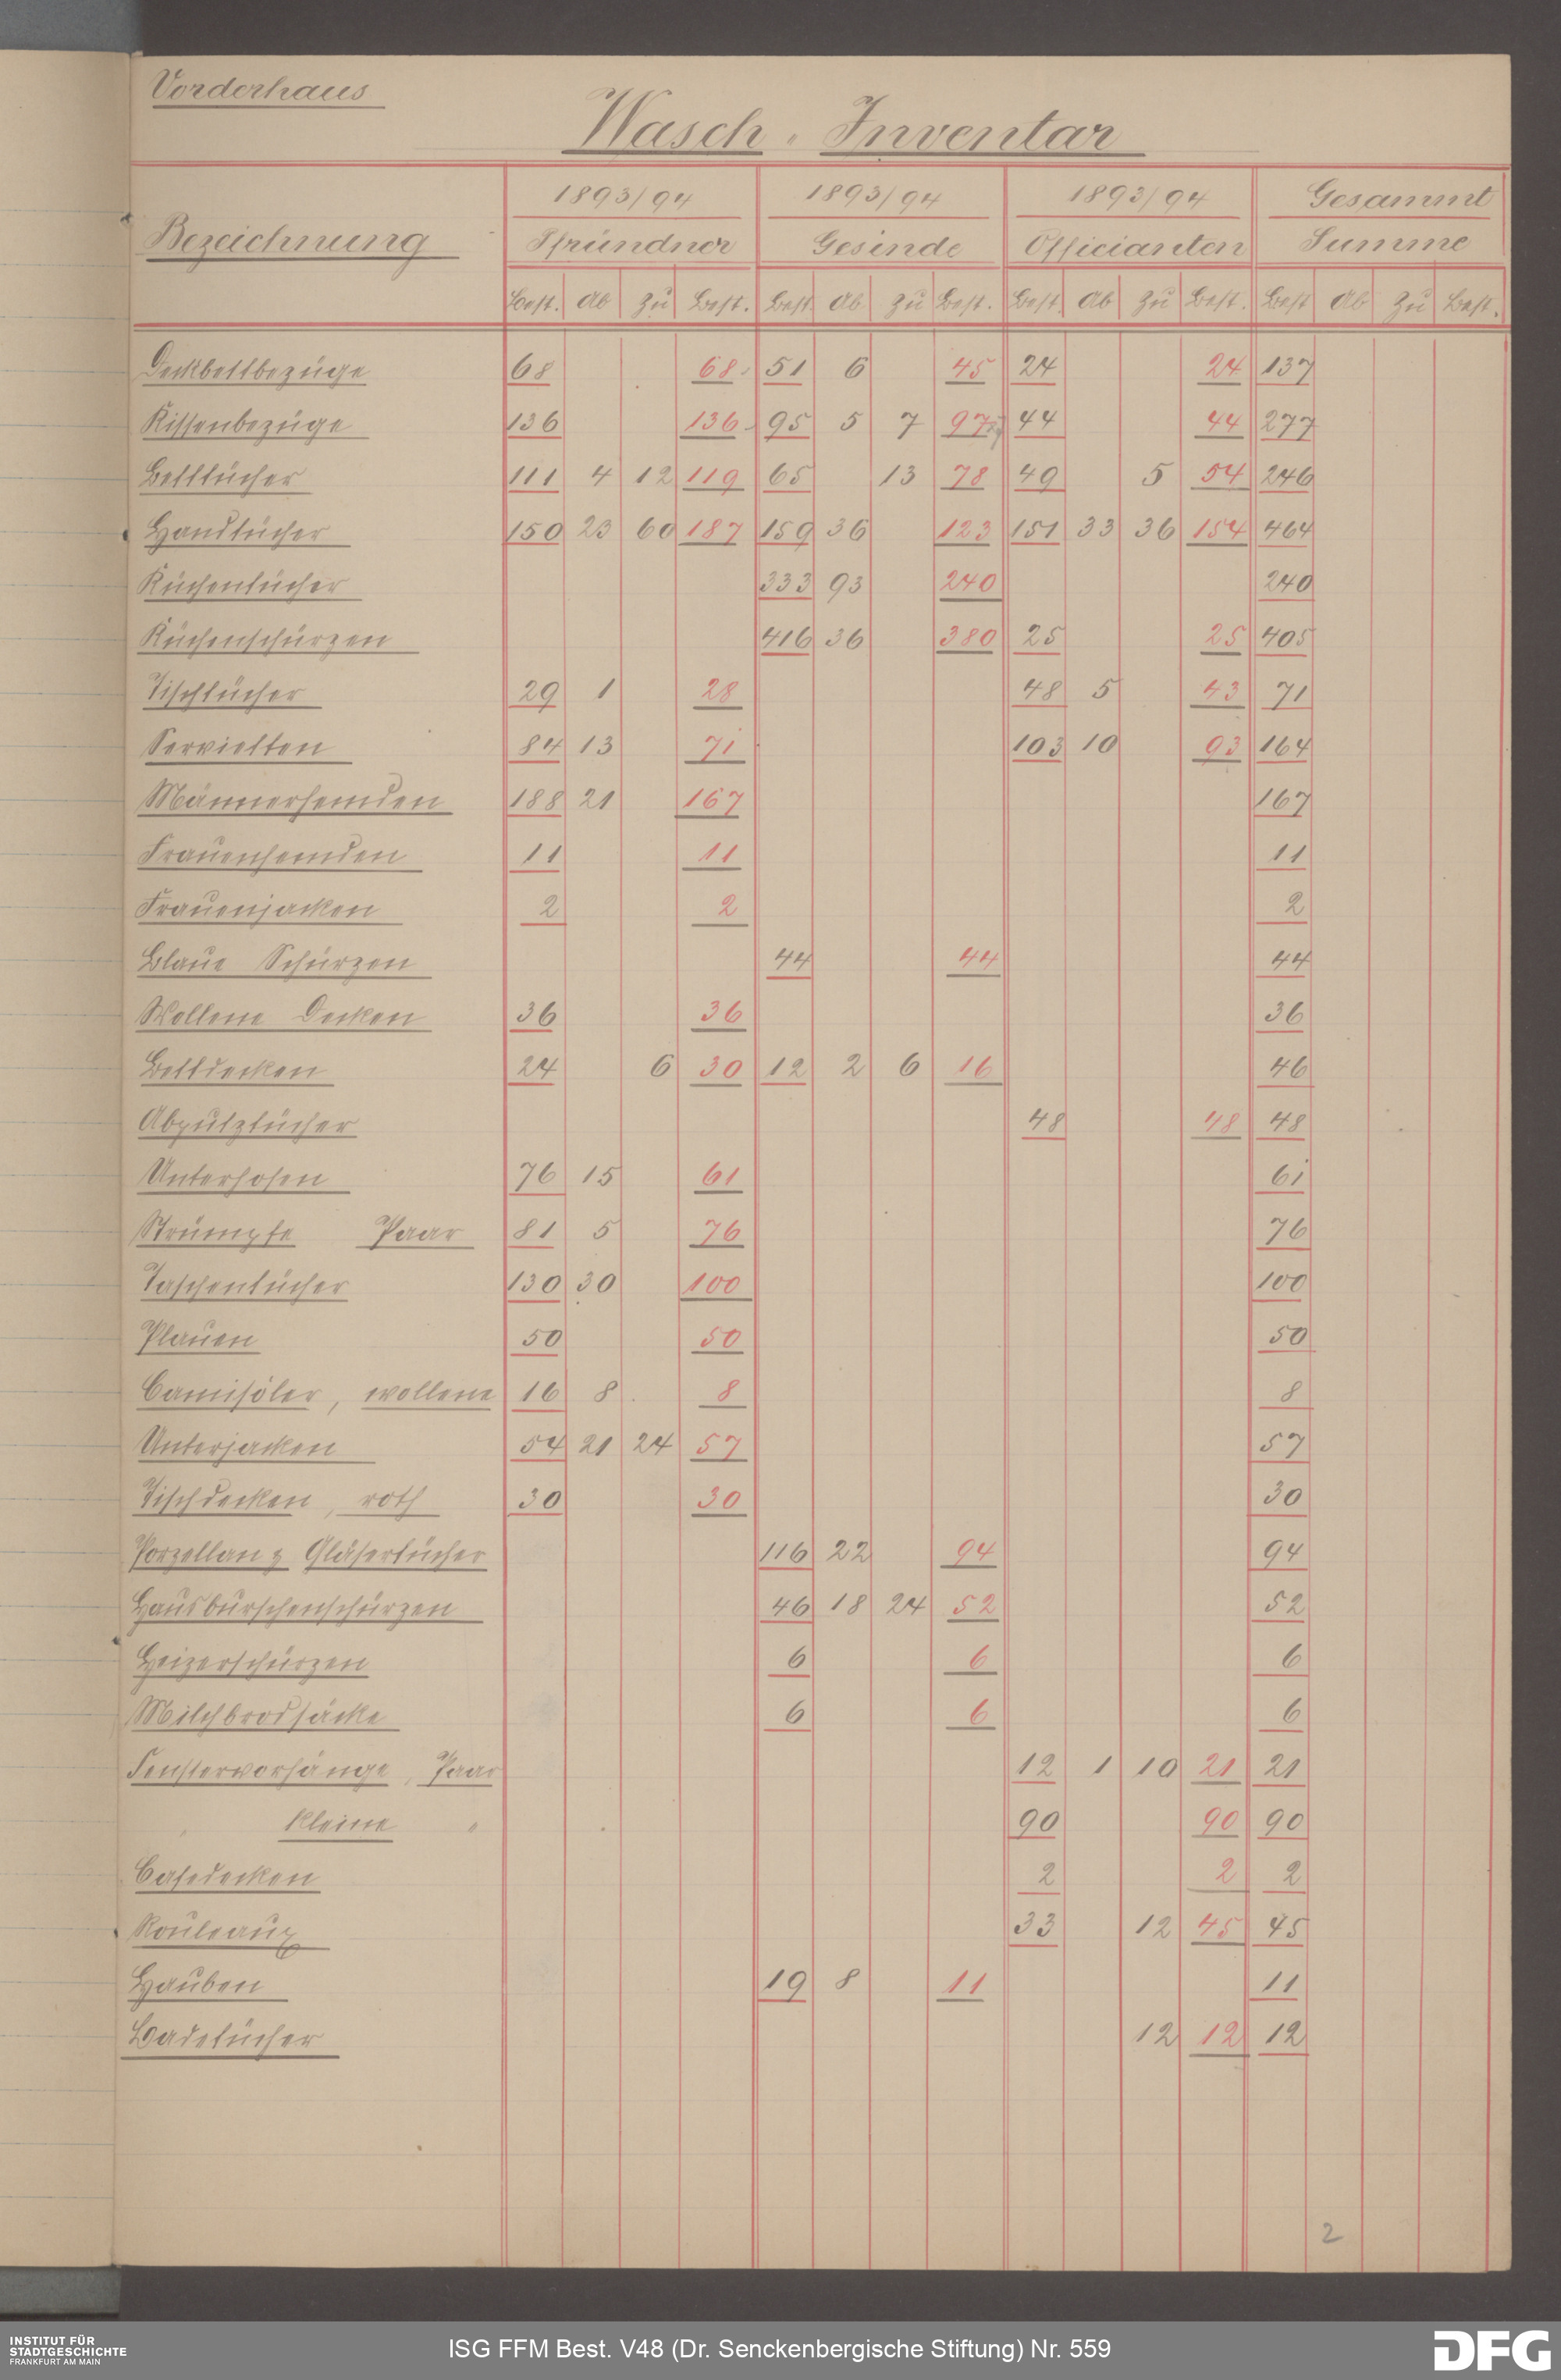 Vorderhaus
Wasch- Inventar
Bezeichnung 1893/94 1893/94 1893/94 Gesammt
Pfründner Gesinde Officianten Summe
Best. Ab Zu Best. Best. Ab Zu Best. Best. Ab Zu Best. Best Ab Zu Best.
Deckbettbezüge 68 68 51 6 45 24 24 137
Kissenbezüge 136 136 95 5 7 97 44 44 277
Betttücher 111 4 12 119 65 13 78 49 5 54 246
Handtücher 150 23 60 187 159 36 123 151 33 36 154 464
Küchentücher 333 93 240 240
Küchenschürzen 416 36 380 25 25 405
Tischtücher 29 1 28 48 5 43 71
Servietten 84 13 71 103 10 93 164
Männerhemden 188 21 167 167
Frauenhemden 11 11 11
Frauenjacken 2 2 2
Blaue Schürzen 44 44 44
Wollene Decken 36 36 36
Bettdecken 24 6 30 12 2 6 16 46
Abputztücher 48 48 48
Unterhosen 76 15 61 61
Strümpfe Paar 81 5 76 76
Taschentücher 130 30 100 100
Plauen 50 50 50
Camisöler, wollene 16 8 8 8
Unterjacken 54 21 24 57 57
Tischdecken, roth 30 30 30
Porzellan Gläsertücher 116 22 94 94
Hausburschenschürzen 46 18 24 52 52
Heizerschürzen 6 6 6
Milchbrodsäcke 6 6 6
Fenstervorhänge, Paar 12 1 10 21 21
" kleine " 90 90 90
Cafedecken 2 2 2
Rouleaux 33 12 45 45
Hauben 19 8 11 11
Badetücher 12 12 12
2
INSTITUT FÜR
STADTGESCHICHTE
FRANKFURT AM MAIN
ISG FFM Best. V48 (Dr. Senckenbergische Stiftung) Nr. 559
DFG